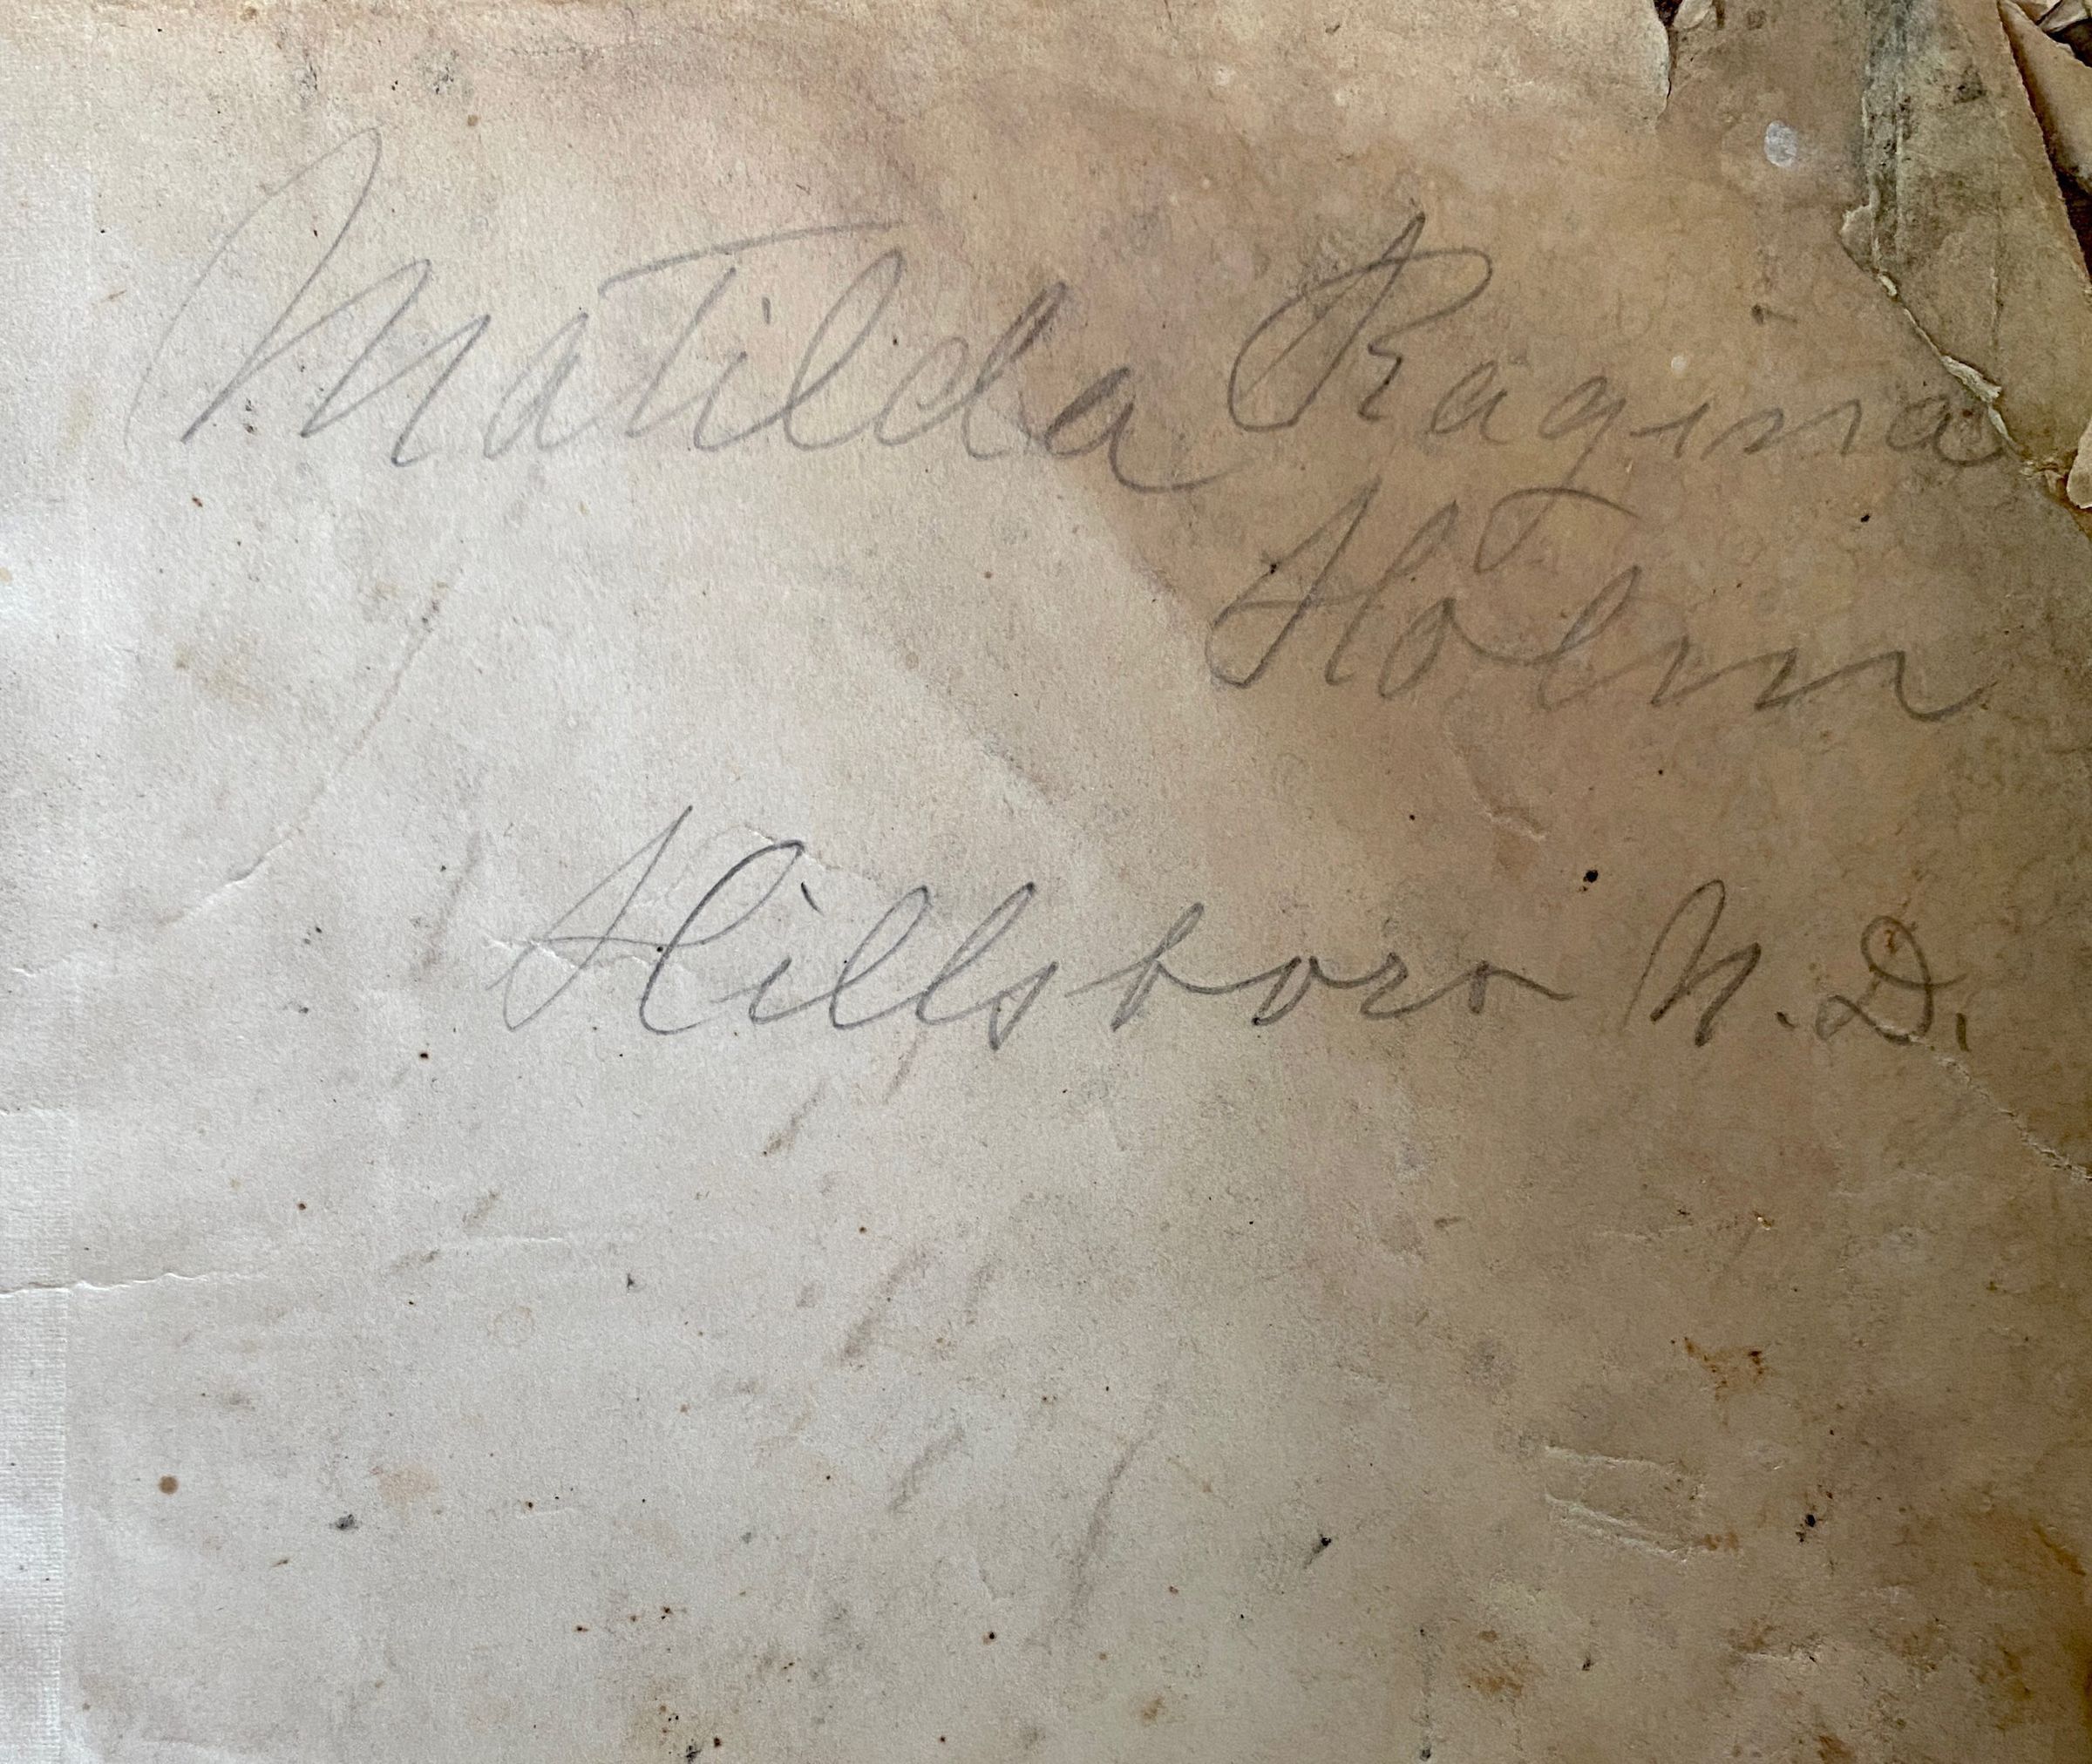 Matilda Ragina
Holm
Hillsboro N.D.